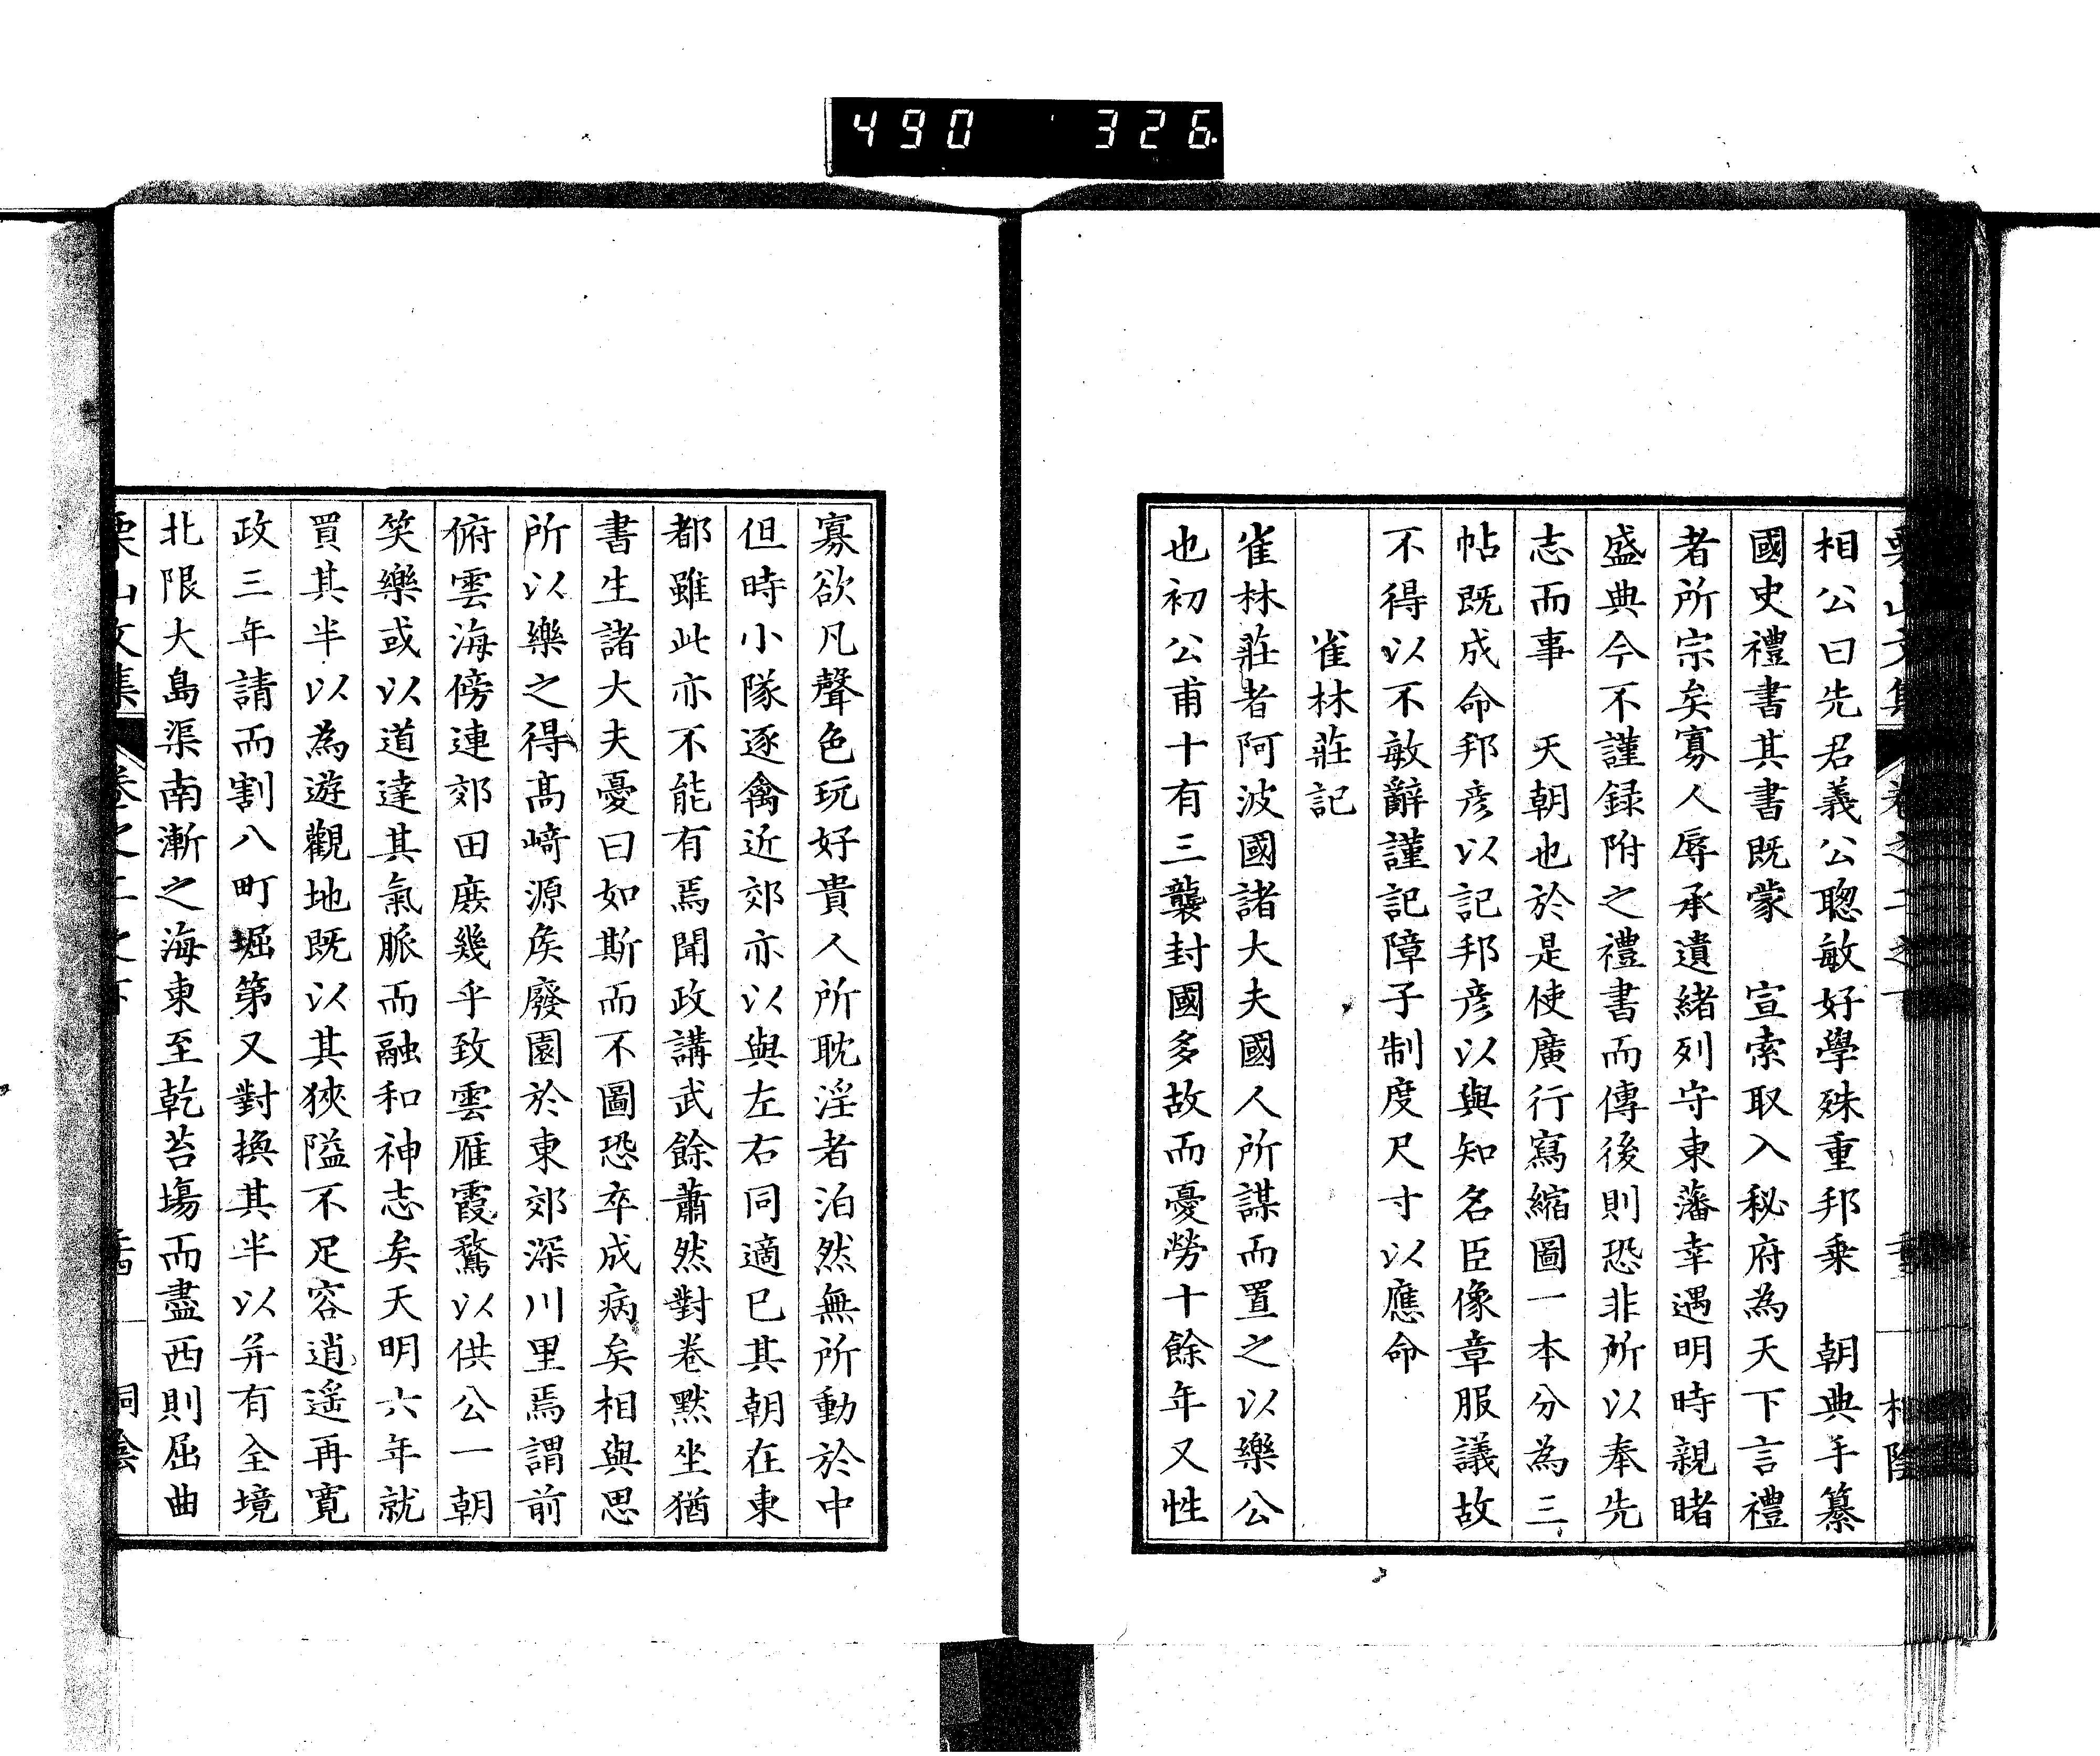 490 326
相公曰先君義公聰敏好學殊重邦乗　朝典手纂
國史禮書其書既蒙　宣索取入秘府為天下言禮
者所宗矣寡人辱承遺緒列守東藩幸遇明時親睹
盛典今不謹録附之禮書而傳後則恐非所以奉先
志而事　天朝也於是使廣行寫縮圖一本分為三
帖既成命邦彦以記邦彦以與知名臣像章服議故
不得以不敏辭謹記障子制度尺寸以應命
雀林莊記
雀林莊者阿波國諸大夫國人所謀而置之以樂公
也初公甫十有三襲封國多故而憂勞十餘年又性
寡欲凡聲色玩好貴人所耽淫者泊然無所動於中
但時小隊逐禽近郊亦以與左右同適已其朝在東
都雖此亦不能有焉聞政講武餘蕭然對卷默坐猶
書生諸大夫憂曰如斯而不圖恐卒成病矣相與思
所以樂之得髙﨑源矦廢園於東郊深川里焉謂前
俯雲海傍連郊田庶幾乎致雲雁霞鶩以供公一朝
笑樂或以道達其氣脈而融和神志矣天明六年就
買其半以為遊觀地既以其狹隘不足容逍遥再寛
政三年請而割八町堀第又對換其半以并有全境
北限大島渠南漸之海東至乾苔塲而盡西則屈曲